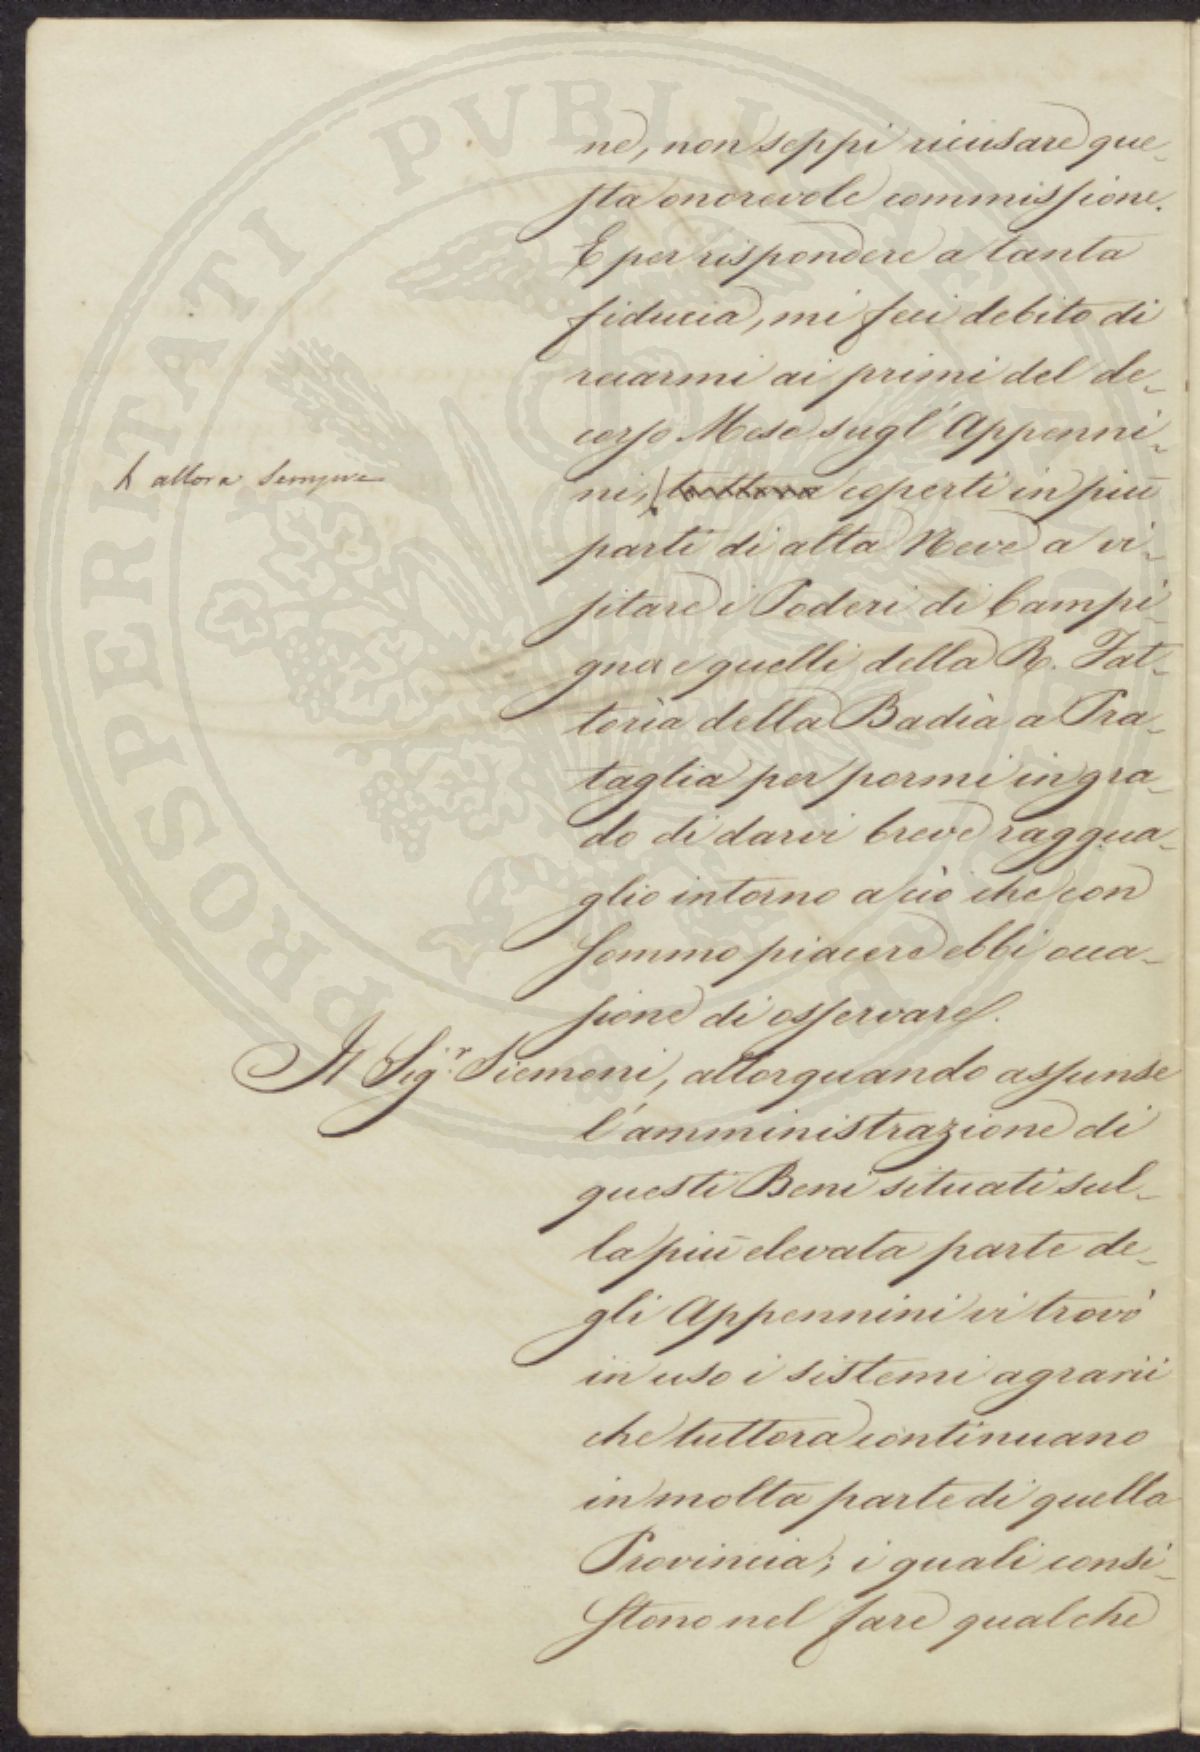 PROSPERITATI PVBLICAE
ne, non seppi ricusare que-
sta onorevole commissione.
E per rispondere a tanta
fiducia, mi feci debito di
recarmi ai primi del de-
corso Mese sugl'Appenni-
allora sempre
ni, tuttora coperti in più
parti di alta Neve a vi-
sitare i Poderi di Campi-
gna e quelli della R. Fat-
toria della Badìa a Pra-
taglia per pormi in gra-
do di darvi breve raggua-
glio intorno a ciò che con
sommo piacere ebbi occa-
sione di osservare.
Il Sig.r Siemoni, allorquando assunse
l'amministrazione di
questi Beni situati sul-
la più elevata parte de-
gli Appennini vi trovò
in uso i sistemi agrarii
che tuttora continuano
in molta parte di quella
Provincia; i quali consi-
stono nel fare qualche